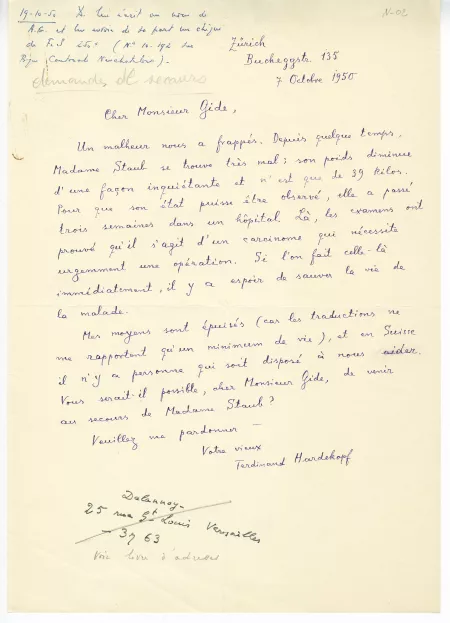 19-10-50 Je lui écrit au nom de
A.G. et lui envoie de sa part un chèque
de F.S 250 = (N° 10.192 sur
demandes de secours
N-02
Zürich
Bucheggstr. 135
7 Octobre 1950
Cher Monsieur Gide,
Un malheur nous a frappés. Depuis quelque temps,
Madame Staub se trouve très mal ; son poids diminue
d'une façon inquiétante et n'est que de 39 kilos.
Pour que son état puisse être observé, elle a passé
trois semaines dans un hôpital. Là, les examens ont
prouvé qu'il s'agit d'un carcinome qui nécessite
urgemment une opération. Si l'on fait celle-là
immédiatement, il y a espoir de sauver la vie de
la malade.
Mes moyens sont épuisés (car les traductions ne
me rapportent qu'un minimum de vie), et en Suisse
il n'y a personne qui soit disposé à nous aider.
Vous serait-il possible, cher Monsieur Gide, de venir
au secours de Madame Staub ?
Veuillez me pardonner —
Votre vieux
Ferdinand Hardekopf
Delannoy
25 rue St Louis Versailles
- 39 63
Voir livre d'adresses